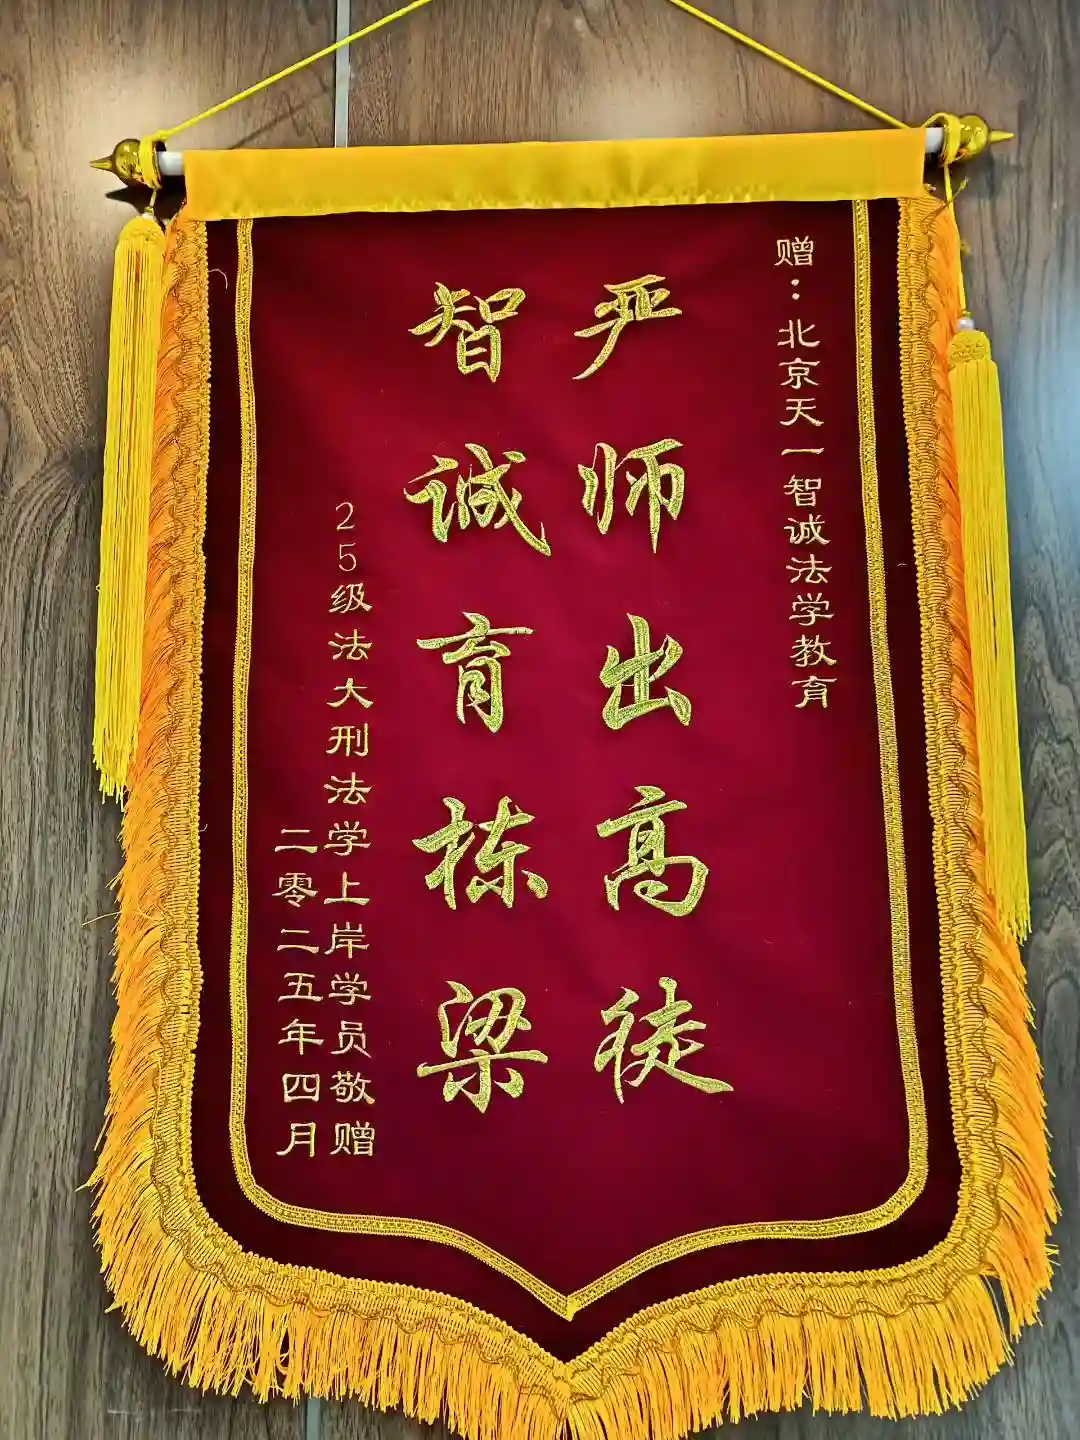 赠：北京天一智诚法学教育
严师出高徒
智诚育栋梁
25级法大刑法学上岸学员敬赠
二零二五年四月